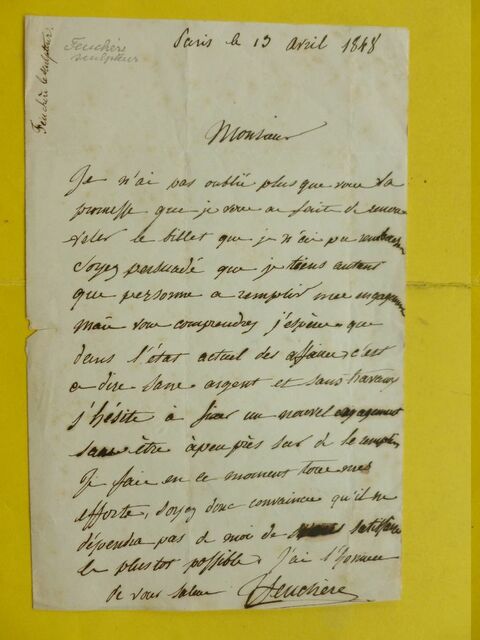 Paris le 13 avril 1848
Feuchère
sculpteur
Feuchère le sculpteur.
Monsieur
Je n'ai pas oublié plus que vous la
promesse que je vous ai fait de renou
veler le billet que je n'ai pu rembourser
Soyez persuadé que je tiens autant
que personne a remplir mes engagemens
mais vous comprendrez j'espère que
dans l'état actuel des affaires, c'est
a dire sans argent et sans travaux
j'hésite à fixer un nouvel engagement
sans être àpeuprès sur de le remplir
Je fais en ce moment tous mes
efforts, soyez donc convaincu qu'il ne
dépendra pas de moi de satisfaire
le plustot possible, J'ai l'honneur
de vous saluer Feuchère